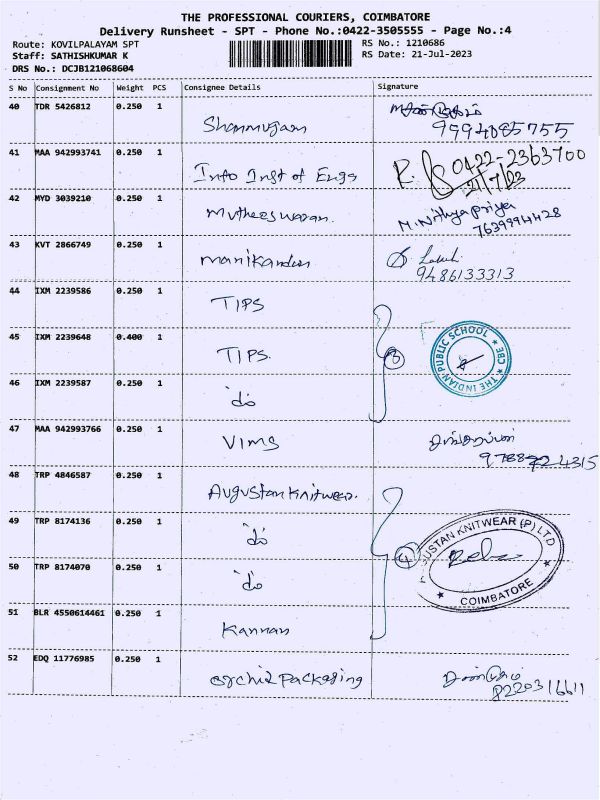 THE PROFESSIONAL COURIERS, COIMBATORE
Delivery Runsheet - SPT - Phone No.:0422-3505555 - Page No.:4
Route: KOVILPALAYAM SPT
Staff: SATHISHKUMAR K
DRS No.: DCJB121068604
RS No.: 1210686
RS Date: 21-Jul-2023
S No Consignment No Weight PCS Consignee Details Signature
40 TDR 5426812 0.250 1
Shanmugam
9994085755
41 MAA 942993741 0.250 1
Info Inst of Engg
R. 0422-2363700
21/7/23
42 MYD 3039210 0.250 1
Mutheeswaran.
M. Nithyapriya
7639994428
43 KVT 2866749 0.250 1
Manikandan
9486133313
44 IXM 2239586 0.250 1
TIPS
45 IXM 2239648 0.400 1
TIPS.
3
THE INDIAN PUBLIC SCHOOL ★ CBE ★
46 IXM 2239587 0.250 1
"do"
47 MAA 942993766 0.250 1
VIMS
48 TRP 4846587 0.250 1
Augustan Knitwear.
49 TRP 8174136 0.250 1
"do"
4
AUGUSTAN KNITWEAR (P) LTD
★ COIMBATORE ★
50 TRP 8174070 0.250 1
"do"
51 BLR 4550614461 0.250 1
Kannan
52 EDQ 11776985 0.250 1
Orchid Packaging
8220316611